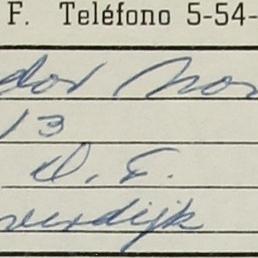 F. Teléfono 5-54-
dor Nor
13
D. F.
verdijk